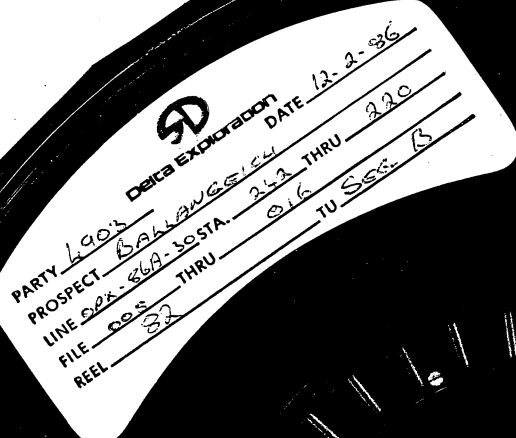 Delta Exploration
DATE 12-2-86
PARTY 4903
PROSPECT BALLANGEICH
LINE OPX-86A-30 STA. 242 THRU 220
FILE 005 THRU 016
REEL 82 TU SEC. B